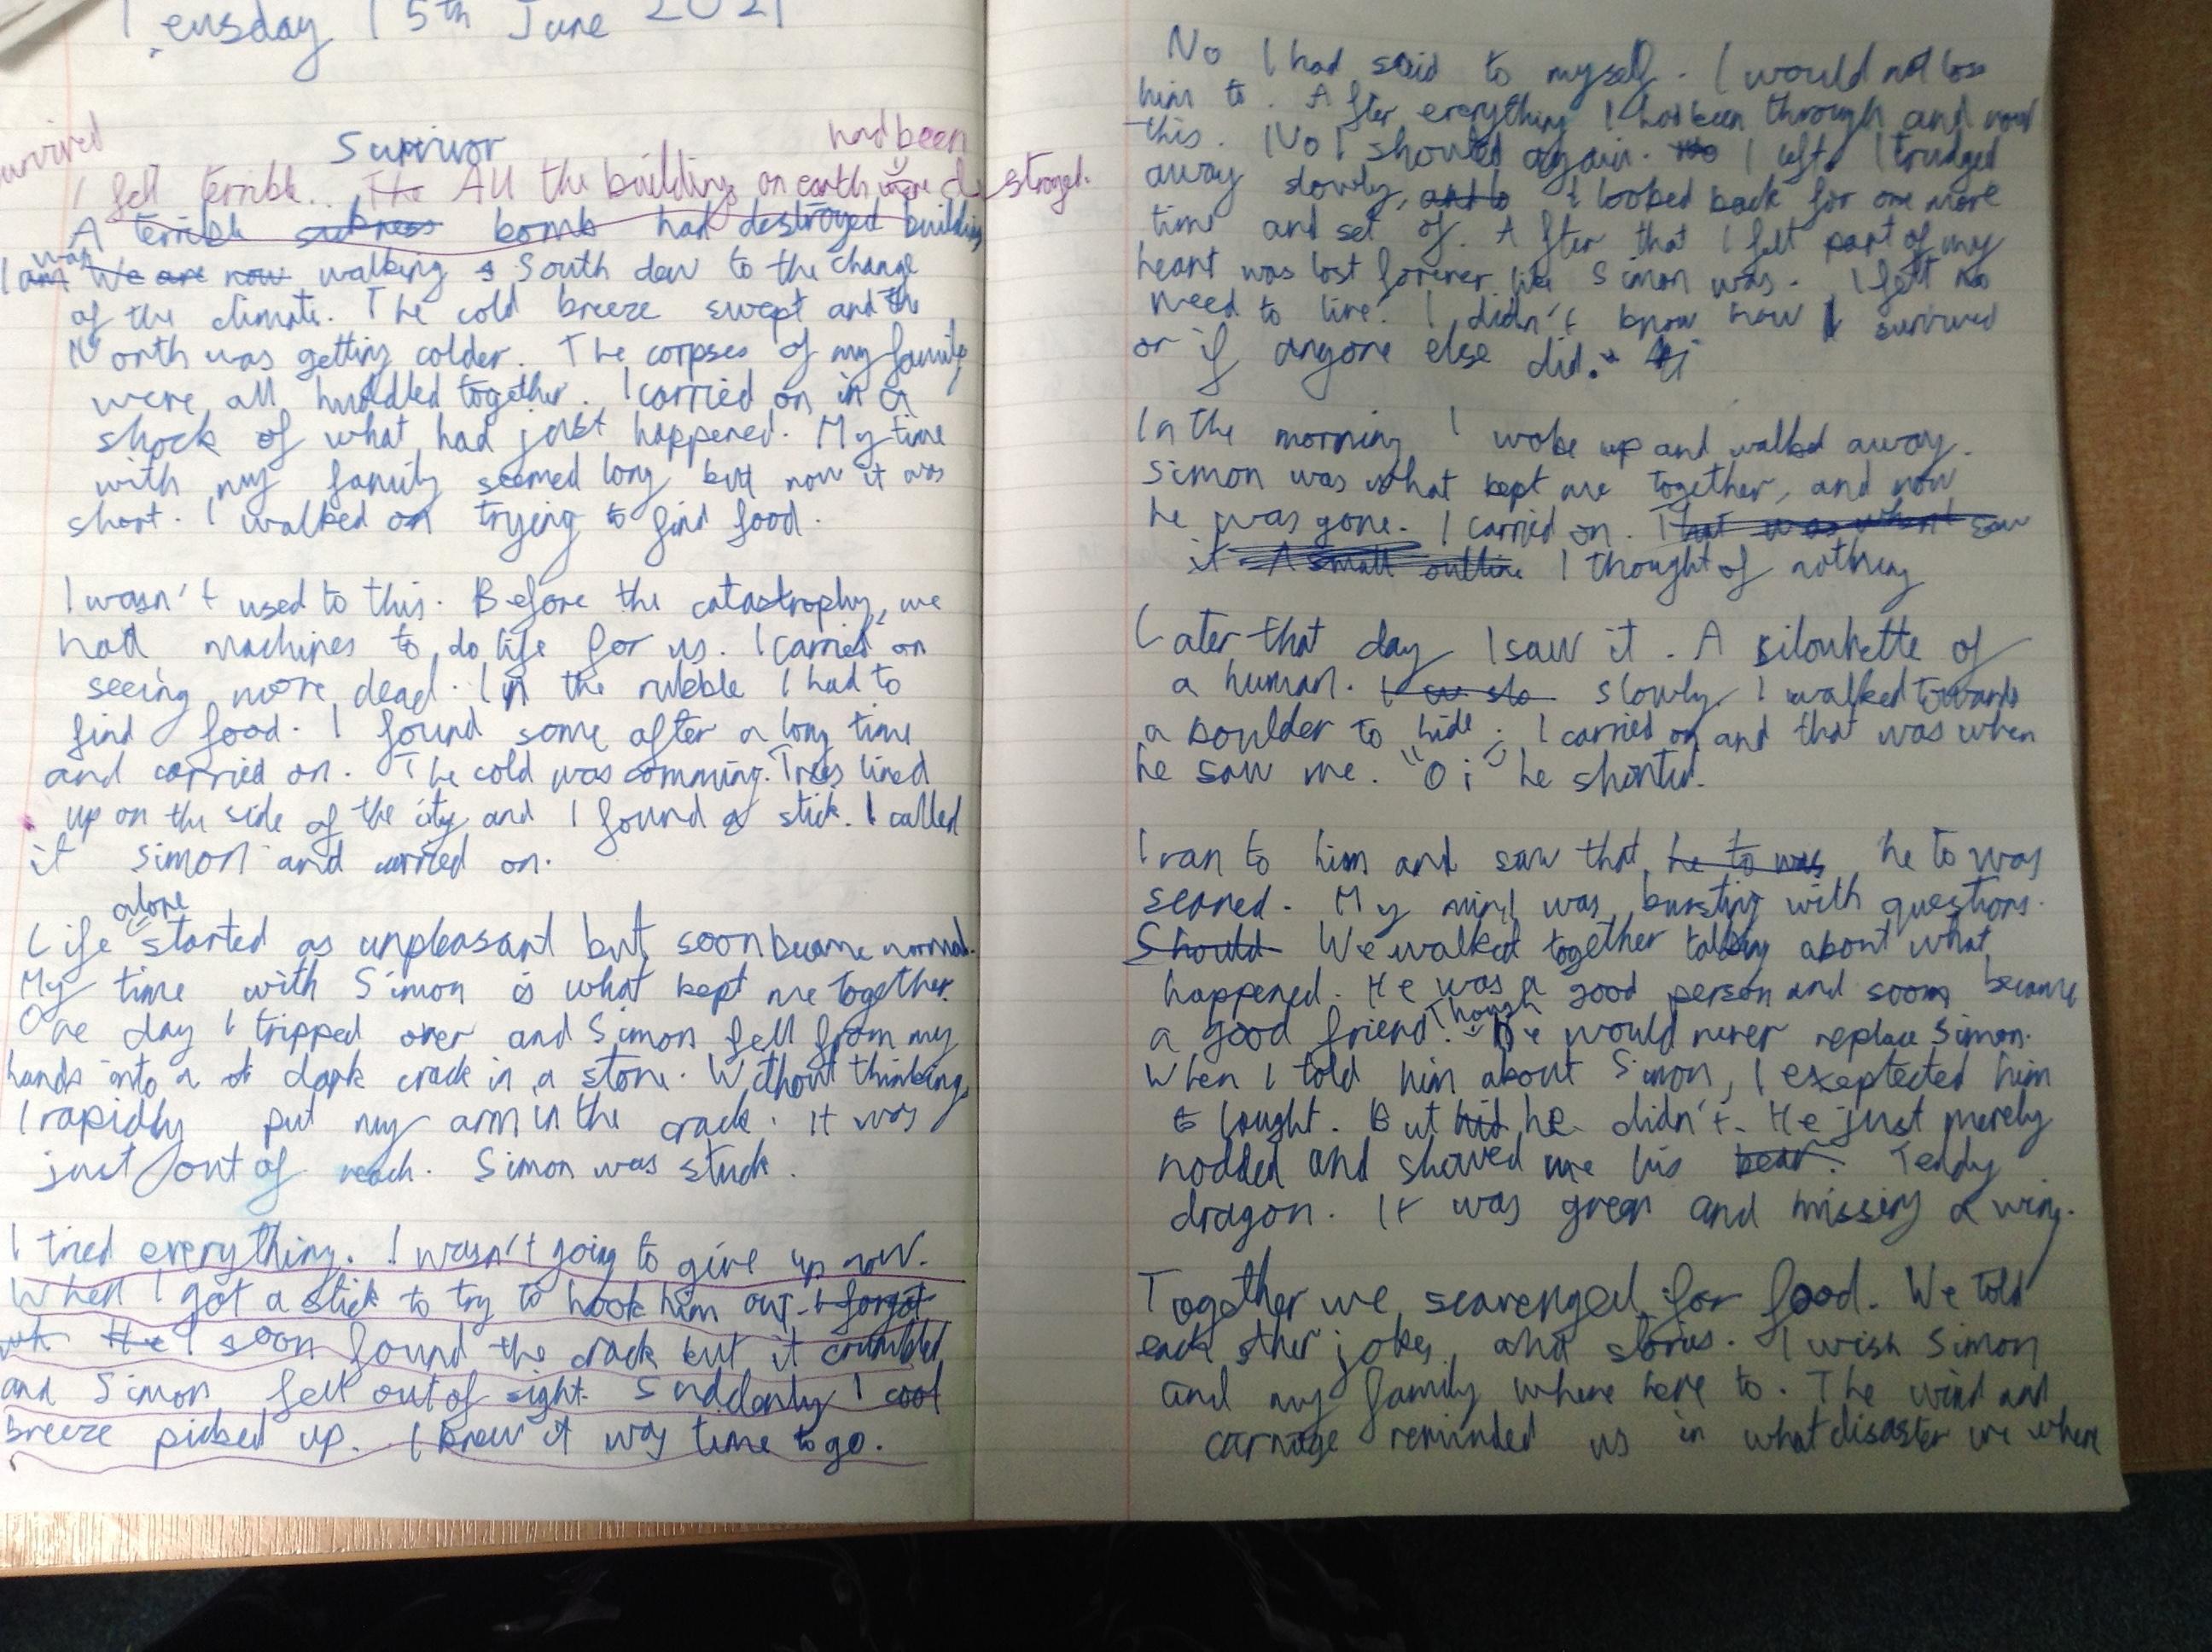 Teusday 15th June 2021
Survivor
had been
I felt terrible... The All the buildings on earth were destroyed.
A terrible sickness bomb had destroyed building
was
I am We are now walking South dew to the change
of the climate. The cold breeze swept and the
North was getting colder. The corpses of my family
were all huddled together. I carried on in a
shock of what had just happened. My time
with my family seemed long but now it was
short. I walked on trying to find food.
I wasn't used to this. Before the catastrophy, we
had machines to do life for us. I carried on
seeing more dead. In the rubble I had to
find food. I found some after a long time
and carried on. The cold was comming. Trees lined
up on the side of the city and I found a stick. I called
it simon and carried on.
alone
Life started as unpleasant but soon became normal.
My time with Simon is what kept me together.
One day I tripped over and Simon fell from my
hands into a dark crack in a stone. Without thinking,
I rapidly put my arm in the crack. It was
just out of reach. Simon was stuck.
I tried everything. I wasn't going to give up now.
When I got a stick to try to hook him out. I forgot
He I soon found the crack but it crumbled
and Simon fell out of sight. Suddenly I cool
breeze picked up. I knew it was time to go.
No I had said to myself. I would not lose
him to. After everything I had been through and now
this. No I shouted again. No I left. I trudged
away slowly, and to I looked back for one more
time and set of. After that I felt part of my
heart was lost forever like Simon was. I felt no
need to live. I didn't know how I survived
or if anyone else did.
In the morning I woke up and walked away.
Simon was what kept me together, and now
he was gone. I carried on. That was when I saw
it A small outline I thought of nothing
Later that day I saw it. A silouhette of
a human. I w slo slowly I walked towards
a boulder to hide. I carried on and that was when
he saw me. "Oi" he shouted.
I ran to him and saw that he to was he to was
scared. My mind was bursting with questions.
Should We walked together talking about what
happened. He was a good person and soon became
a good friend. Though He would never replace Simon.
When I told him about Simon, I exeptected him
to laught. But hid he didn't. He just merely
nodded and showed me his bear. Teddy
dragon. It was green and missing a wing.
Together we scavenged for food. We told
each other jokes and stories. I wish Simon
and my family where here to. The wind and
carnage reminded us in what disaster we where